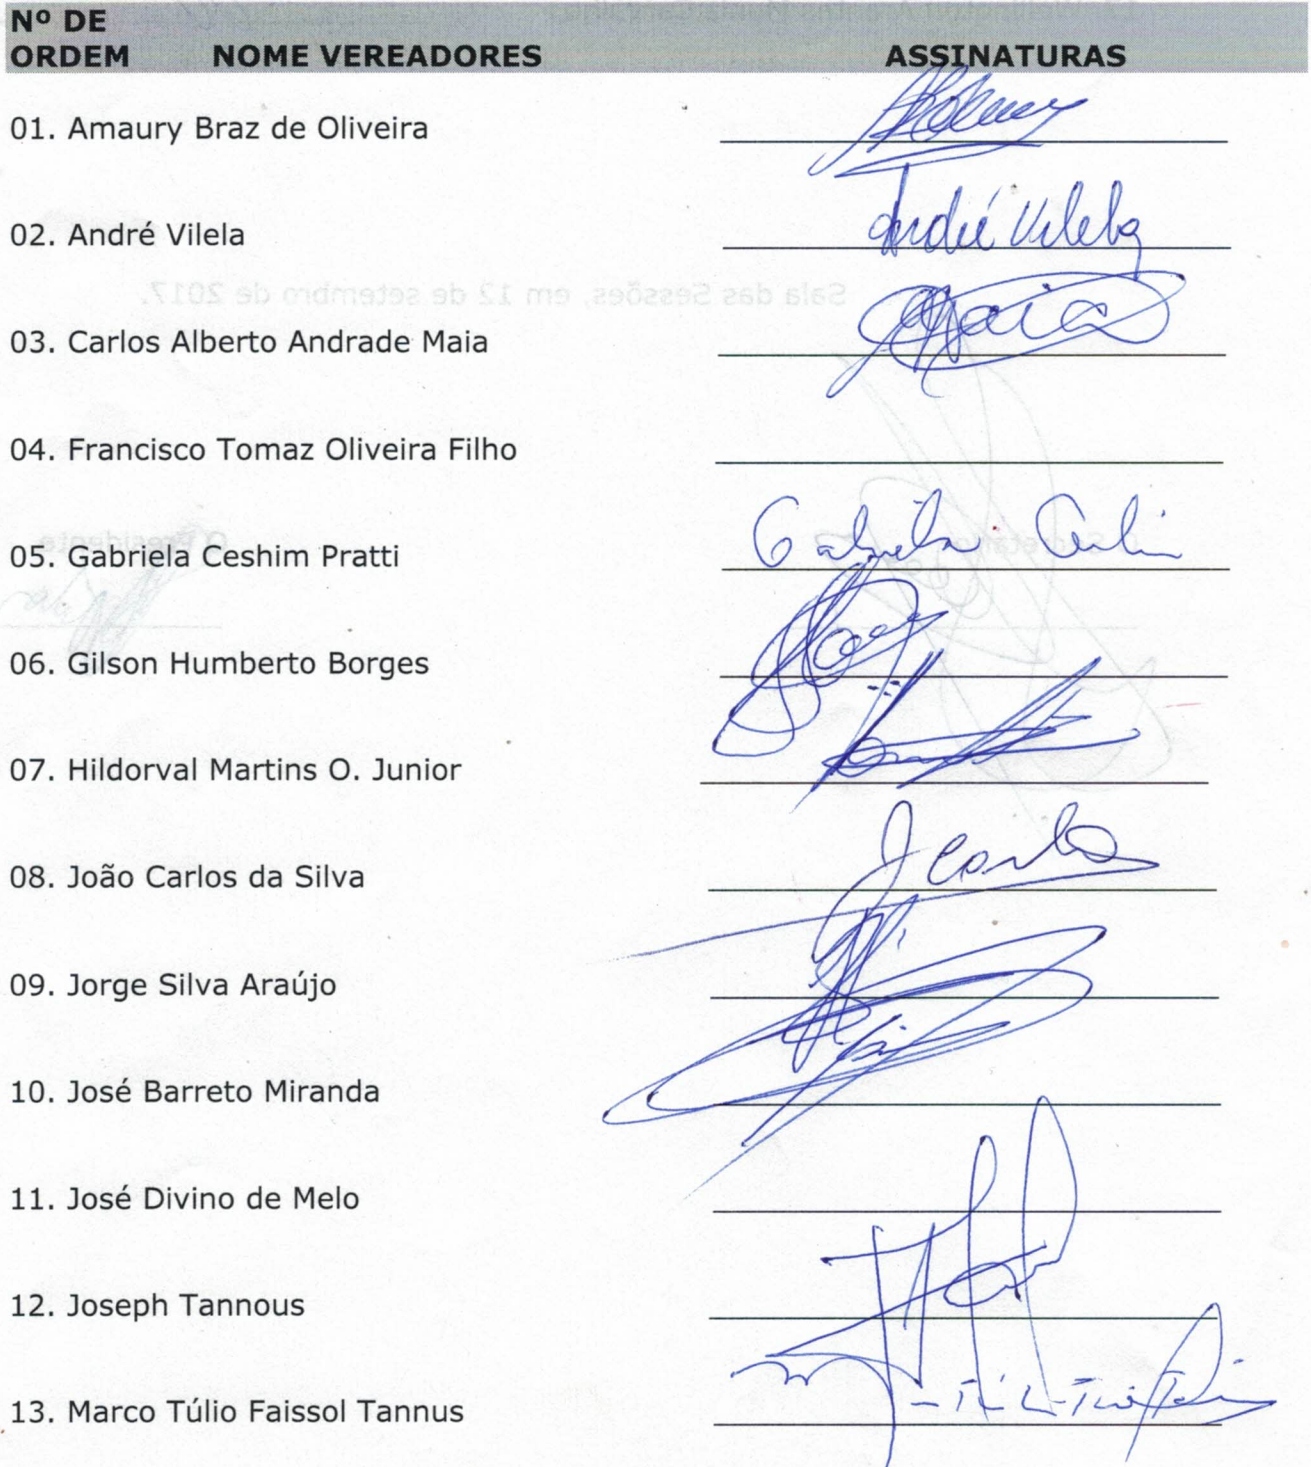 Nº DE
ORDEM NOME VEREADORES ASSINATURAS
01. Amaury Braz de Oliveira
02. André Vilela André Vilela
Sala das Sessões, em 12 de setembro de 2017.
03. Carlos Alberto Andrade Maia Maia
04. Francisco Tomaz Oliveira Filho
O Presidente O Secretário
05. Gabriela Ceshim Pratti Gabriela
06. Gilson Humberto Borges
07. Hildorval Martins O. Junior
08. João Carlos da Silva J Carlos
09. Jorge Silva Araújo
10. José Barreto Miranda
11. José Divino de Melo
12. Joseph Tannous
13. Marco Túlio Faissol Tannus